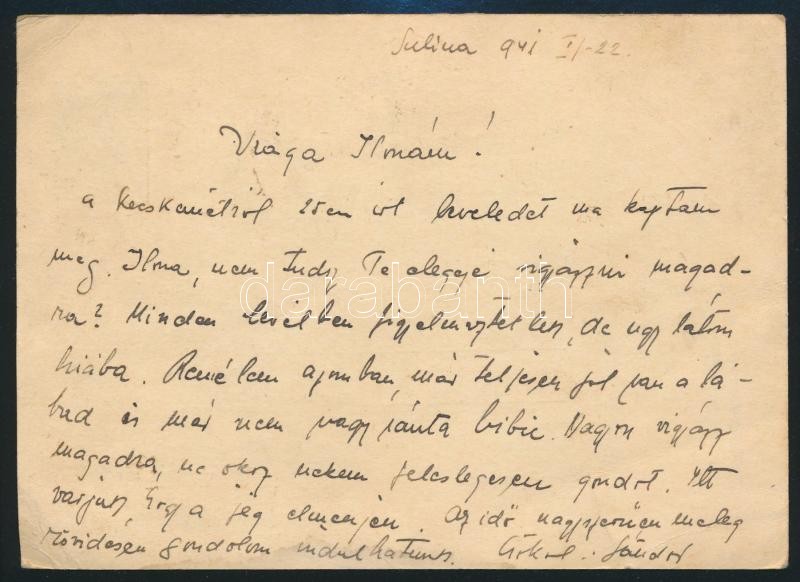 Sulina 941 I/-22.
Drága Ilonám!
a Kecskemétről 15en írt leveledet ma kaptam
meg. Ilona, nem tudsz Te eleggé vigyázni magad-
ra? Minden levélben figyelmeztetlek, de ugy látom
hiába. Remélem azonban, már teljesen jól van a lá-
bad is már nem vagy sánta bibic. Nagyon vigyázz
magadra, ne okoz nekem feleslegesen gondot. Itt
várjuk, hogy a jég elmenjen. Az idő nagyszerűen meleg
rövidesen gondolom indulhatunk. Csókol: Sándor
darabanth